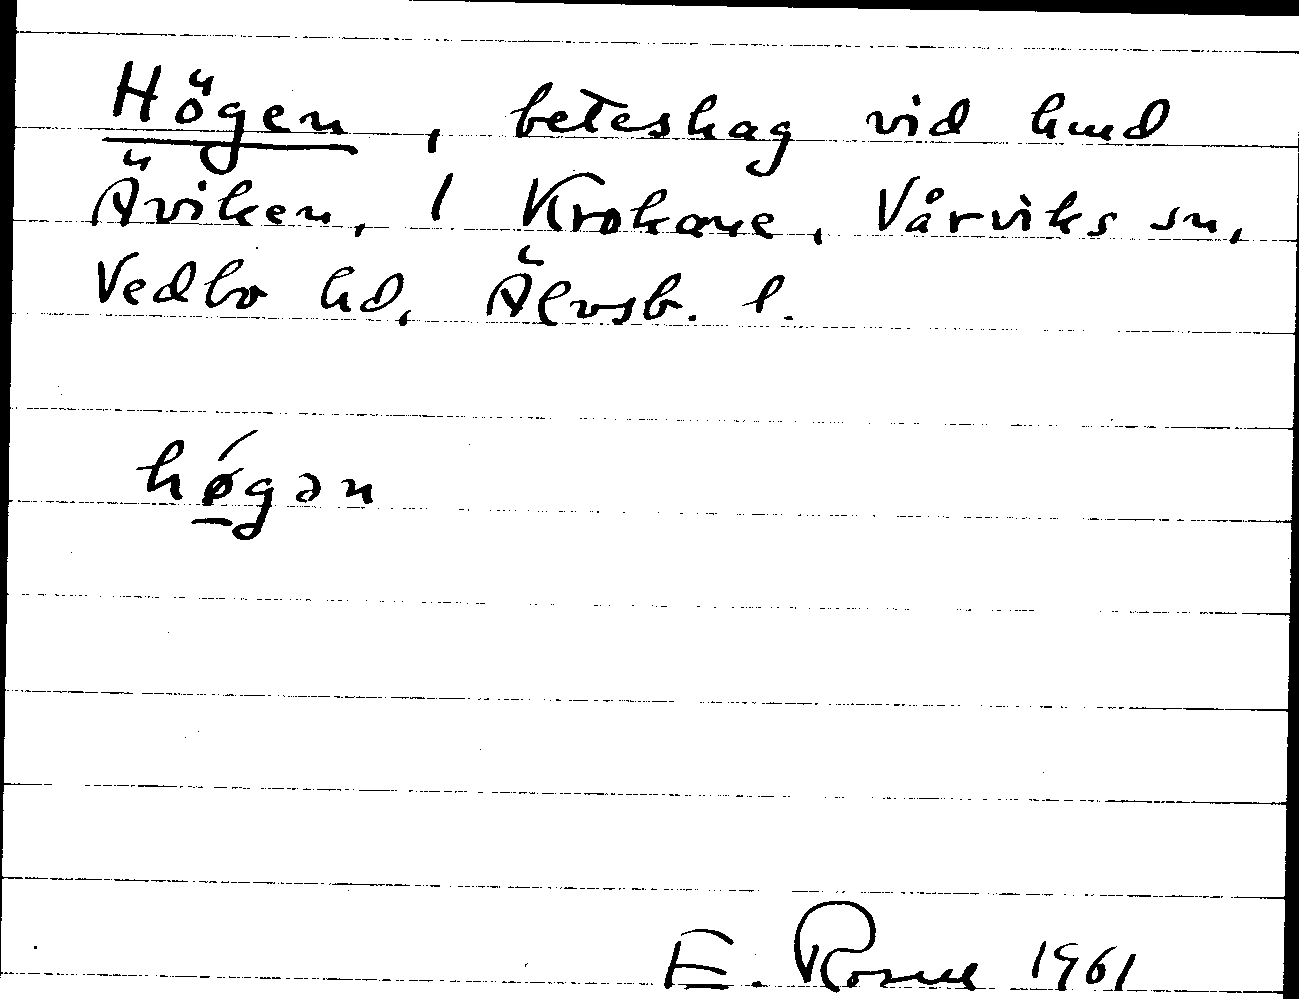 Högen, beteshag vid hmd
Äviken, 1 Krokane, Vårviks sn,
Vedbo hd, Älvsb. l.
hǿ̱gən
E. Rosell 1961